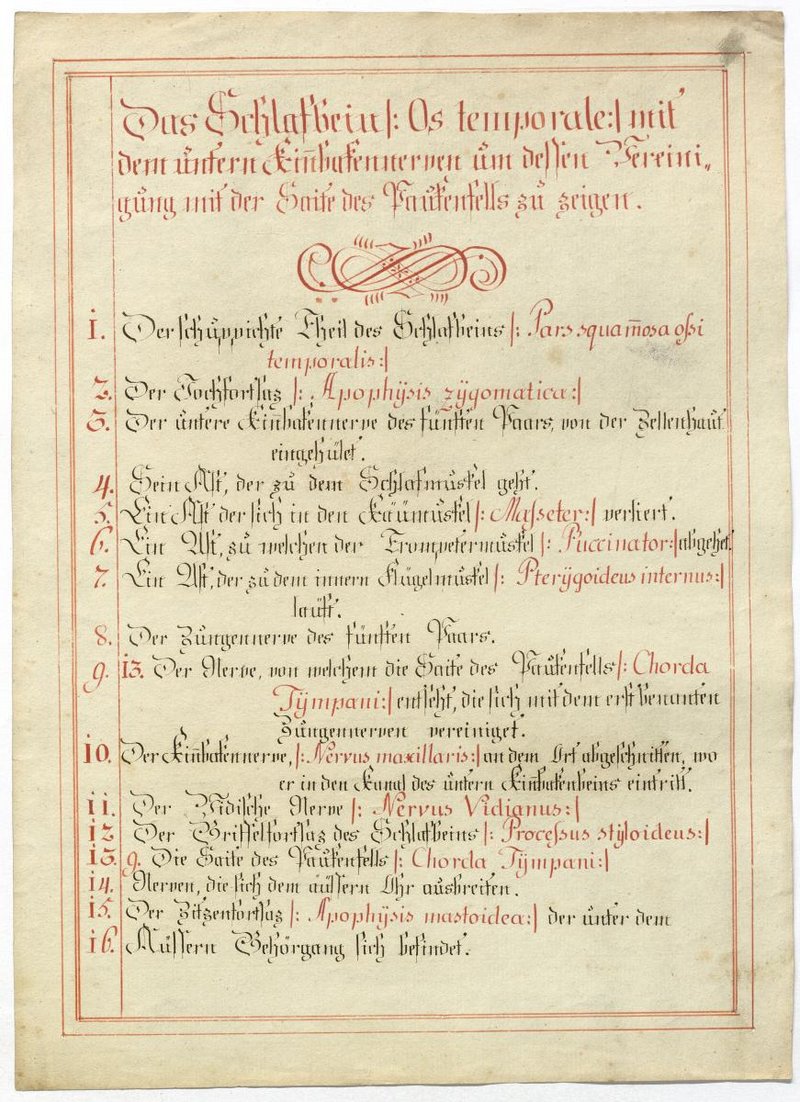 Das Schlafbein /: Os temporale :/ mit
dem untern Kin̄bakennerven um dessen Vereini„
gung mit der Saite des Paukenfells zu zeigen.
1. Der schuppichte Theil des Schlafbeins /: Pars squam̄osa ossi
temporalis :/
2. Der Jochfortsaz /: Apophÿsis zÿgomatica :/
3. Der untere Kin̄bakennerve des fünften Paars, von der Zellenhaut
eingehület.
4. Sein Ast, der zu dem Schlafmuskel geht.
5. Ein Ast der sich in den Kaümuskel /: Masseter :/ verliert.
6. Ein Ast, zu welchen der Trompetermuskel /: Puccinator :/ abgehet.
7. Ein Ast, der zu dem innern Flügelmuskel /: Pterÿgoideus internus :/
lauft.
8. Der Zungennerve des fünften Paars.
9. 13. Der Nerve, von welchem die Saite des Paukenfells /: Chorda
Tÿmpani :/ entsteht, die sich mit dem erst benanten
Zungennerven vereiniget.
10. Der Kin̄bakennerve, /: Nervus maxillaris :/ an dem Ort abgeschnitten, wo
er in den Kanal des untern Kin̄bakenbeins eintritt.
11. Der Vidische Nerve /: Nervus Vidianus :/
12 Der Griffelfortsaz des Schlafbeins /: Processus stÿloideus :/
13. 9. Die Saite des Paukenfells /: Chorda Tÿmpani :/
14. Nerven, die sich dem äussern Ohr ausbreiten.
15. Der Zitzenfortsaz /: Apophÿsis mastoidea :/ der unter dem
16. Äussern Gehörgang sich befindet.